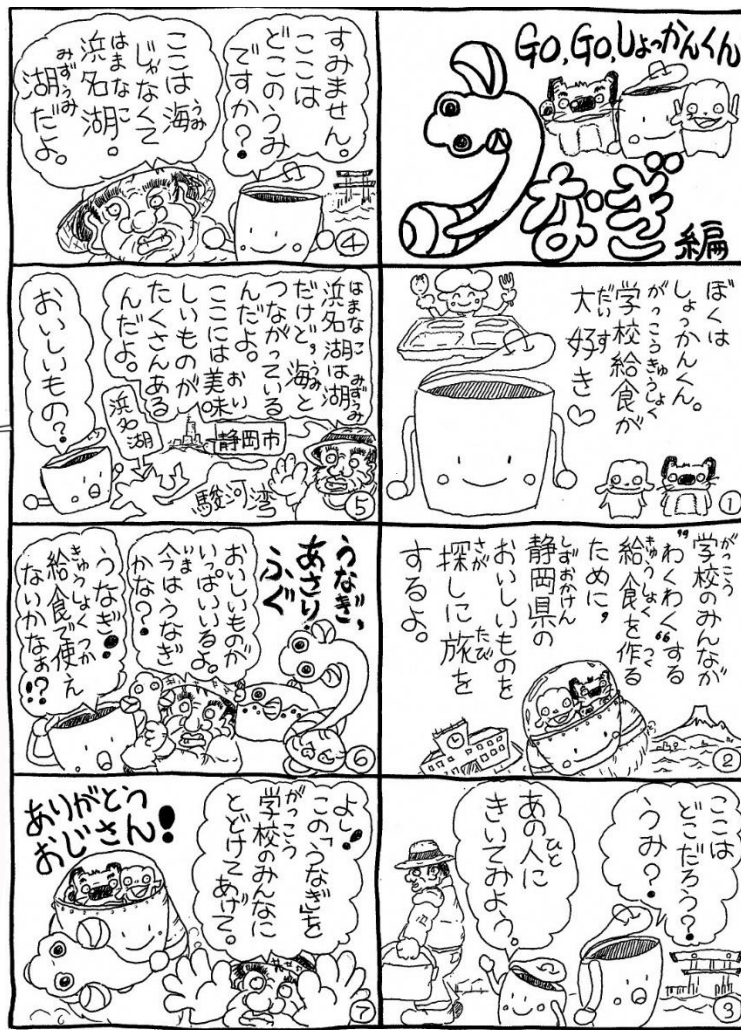 GO, GO, しょっかんくん
うなぎ編
ぼくは
しょっかんくん。
学校給食が
がっこうきゅうしょく
大好き♡
だいす
①
学校のみんなが
がっこう
"わくわく"する
給食を作る
きゅうしょく つく
ために,
静岡県の
しずおかけん
おいしいものを
探しに旅を
さが たび
するよ。
②
ここは
どこだろう?
うみ?
あの人に
ひと
きいてみよう。
③
すみません。
ここは
どこのうみ
ですか?
ここは海
うみ
じゃなくて
浜名湖。
はまなこ
湖だよ。
みずうみ
④
浜名湖は湖
はまなこ みずうみ
だけど,海と
うみ
つながっている
んだよ。
ここには美味
おい
しいものが
たくさんある
んだよ。
おいしいもの?
浜名湖
静岡市
駿河湾
⑤
うなぎ,
あさり
ふぐ
おいしいものが
いっぱいいるよ。
今はうなぎ
いま
かな?
うなぎ!
給食で使え
きゅうしょく つか
ないかなぁ!?
⑥
よし!
この「うなぎ」を
学校のみんなに
がっこう
とどけてあげて。
ありがとう
おじさん!
⑦